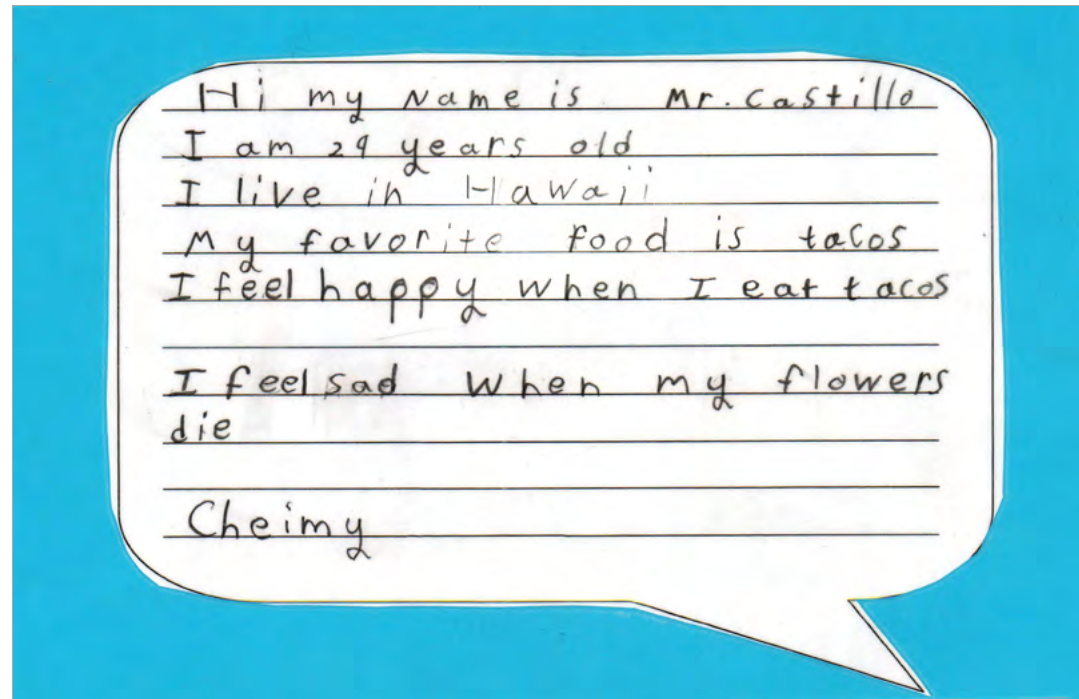 Hi my Name is Mr. Castillo
I am 29 years old
I live in Hawaii
My favorite food is tacos
I feel happy when I eat tacos
I feel sad when my flowers
die
Cheimy